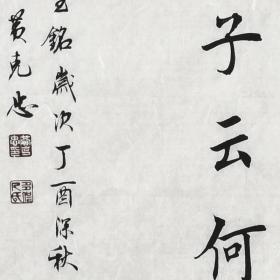 子云何
銘歲次丁酉深秋
黄克忠